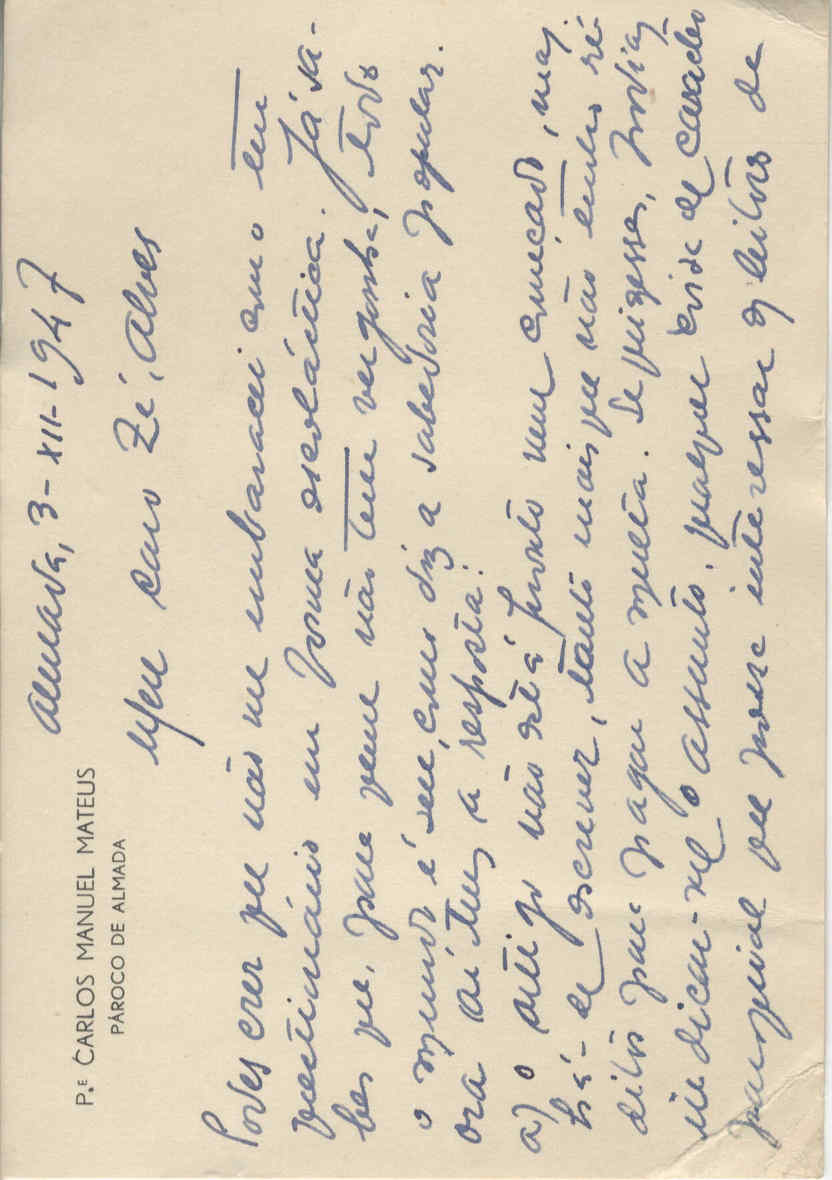 P.E CARLOS MANUEL MATEUS
PÁROCO DE ALMADA
Almada, 3-XII-1947
Meu caro Zé, Alves
Podes crer que não me embaracei com o teu
questionário em forma escolástica. Já sa-
bes que, para quem não tem vergonha, todo
o mundo é seu, como diz a sabedoria popular.
Ora aí tens a resposta:
a) o artigo não está pronto nem começado, mas
há-de escrever, tanto mais que não tenho ré-
ditos para pagar a multa. Se quisesses, podias
indicar-me o assunto, qualquer coisa de carácter
paroquial que possa interessar os leitores de